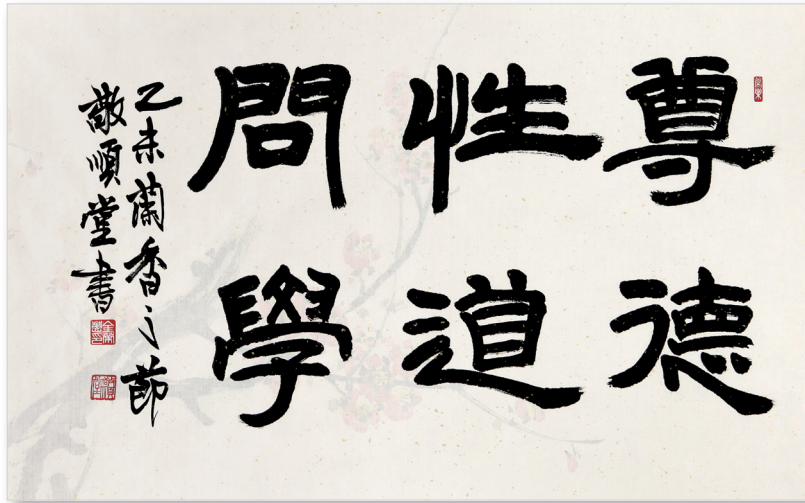 尊德
性道
問學
乙未蘭香之節
敬順堂書